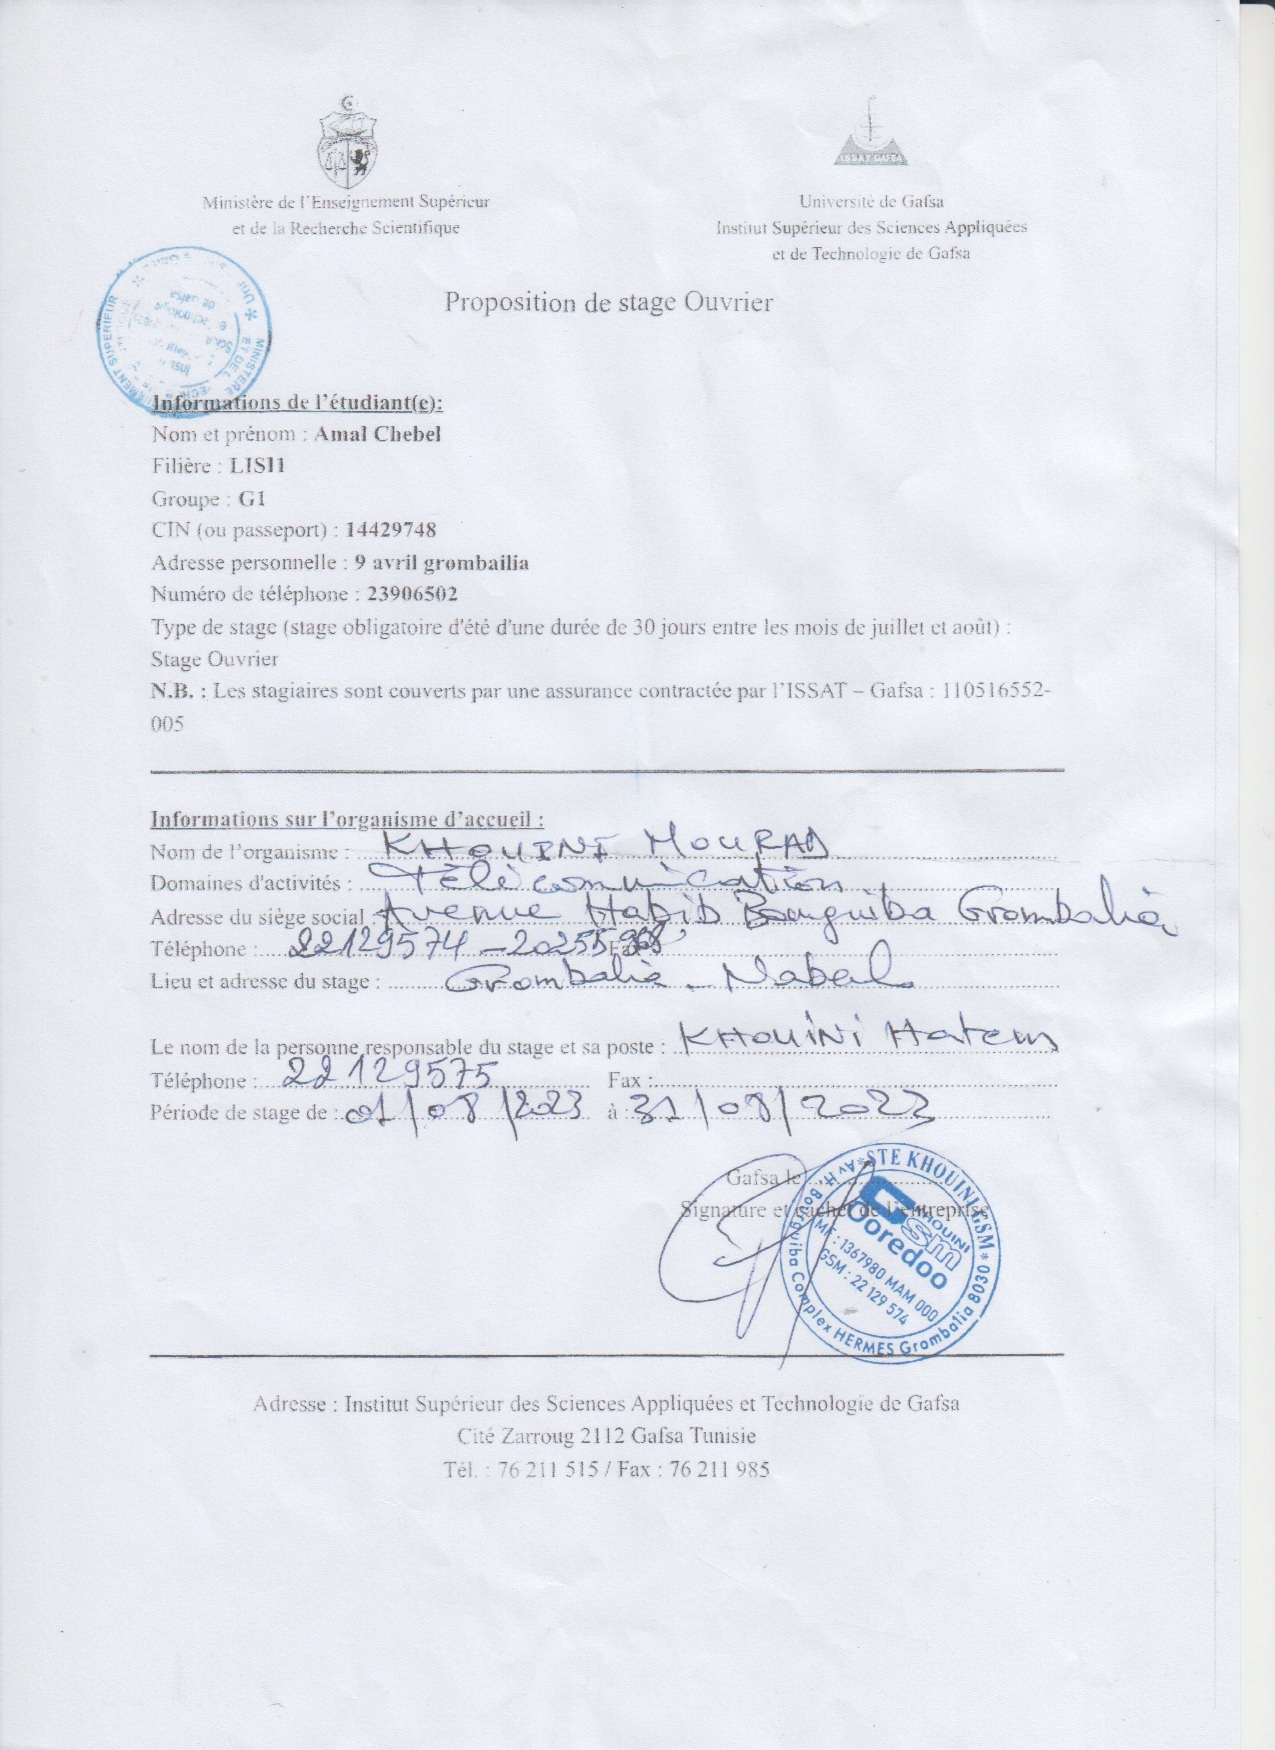 ISSAT GAFSA
Ministère de l'Enseignement Supérieur
et de la Recherche Scientifique
Université de Gafsa
Institut Supérieur des Sciences Appliquées
et de Technologie de Gafsa
Proposition de stage Ouvrier
MINISTERE ET DE L
Informations de l'étudiant(e):
Nom et prénom : Amal Chebel
Filière : LISI1
Groupe : G1
CIN (ou passeport) : 14429748
Adresse personnelle : 9 avril grombailia
Numéro de téléphone : 23906502
Type de stage (stage obligatoire d'été d'une durée de 30 jours entre les mois de juillet et août) :
Stage Ouvrier
N.B. : Les stagiaires sont couverts par une assurance contractée par l'ISSAT – Gafsa : 110516552-
005
Informations sur l'organisme d'accueil :
Nom de l'organisme : KHOUINI MOURAD
Domaines d'activités : Télécomunication
Adresse du siège social : Avenue Habib Bourguiba Grombalia
Téléphone : 22129574 - Fax
Lieu et adresse du stage : Grombalia - Nabeul
Le nom de la personne responsable du stage et sa poste : KHOUINI Hatem
Téléphone : 22129575 Fax :
Période de stage de : 01/08/2023 à : 31/08/2023
Gafsa le
Signature et cachet de l'entreprise
*STE KHOUINI GSM*
Av H. Bourguiba Complex HERMES Grombalia 8030
KHOUINI
Gsm
Ooredoo
MF : 1367980 MAM 000
GSM : 22 129 574
Adresse : Institut Supérieur des Sciences Appliquées et Technologie de Gafsa
Cité Zarroug 2112 Gafsa Tunisie
Tél. : 76 211 515 / Fax : 76 211 985